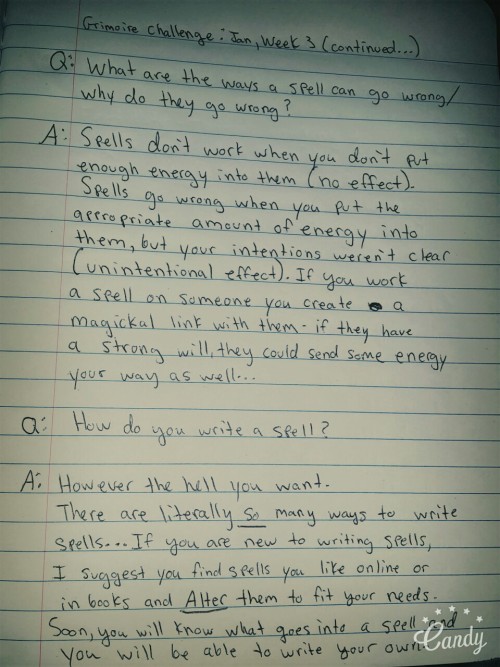 Grimoire Challenge: Jan, Week 3 (continued...)
Q: What are the ways a spell can go wrong/
why do they go wrong?
A: Spells don't work when you don't put
enough energy into them (no effect).
Spells go wrong when you put the
appropriate amount of energy into
them, but your intentions weren't clear
(unintentional effect). If you work
a spell on someone you create a
magickal link with them - if they have
a strong will, they could send some energy
your way as well...
Q: How do you write a spell?
A: However the hell you want.
There are literally so many ways to write
spells... If you are new to writing spells,
I suggest you find spells you like online or
in books and Alter them to fit your needs.
Soon, you will know what goes into a spell and
you will be able to write your own
Candy